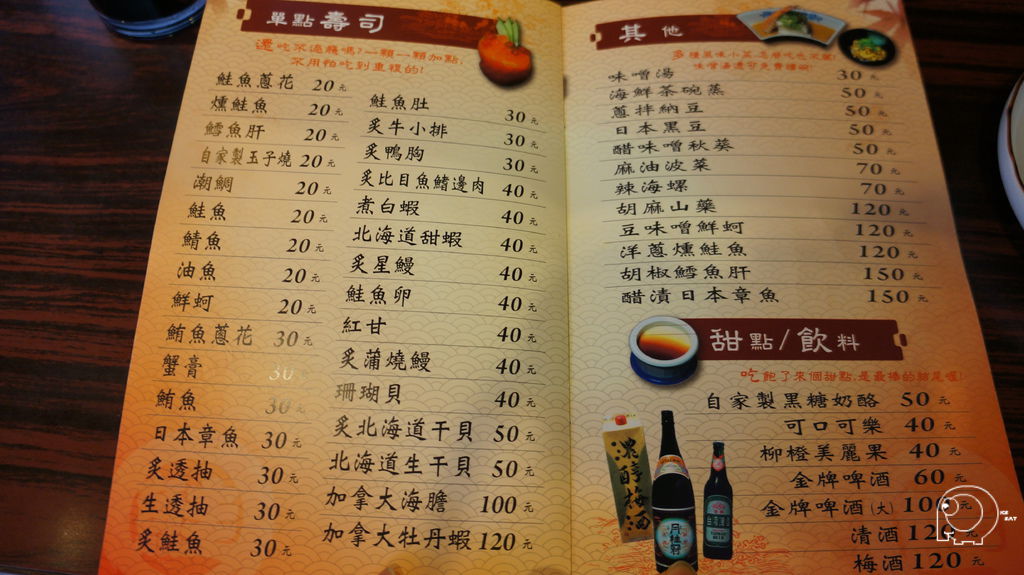 單點壽司
還吃不過癮嗎?一顆一顆加點,
不用怕吃到重複的!
鮭魚蔥花 20元
燻鮭魚 20元
鱈魚肝 20元
自家製玉子燒 20元
潮鯛 20元
鮭魚 20元
鯖魚 20元
油魚 20元
鮮蚵 20元
鮪魚蔥花 30元
蟹膏 30元
鮪魚 30元
日本章魚 30元
炙透抽 30元
生透抽 30元
炙鮭魚 30元
鮭魚肚 30元
炙牛小排 30元
炙鴨胸 30元
炙比目魚鰭邊肉 40元
煮白蝦 40元
北海道甜蝦 40元
炙星鰻 40元
鮭魚卵 40元
紅甘 40元
炙蒲燒鰻 40元
珊瑚貝 40元
炙北海道干貝 50元
北海道生干貝 50元
加拿大海膽 100元
加拿大牡丹蝦 120元
其他
味噌湯 30元
海鮮茶碗蒸 50元
蔥拌納豆 50元
日本黑豆 50元
醋味噌秋葵 50元
麻油波菜 70元
辣海螺 70元
胡麻山藥 120元
豆味噌鮮蚵 120元
洋蔥燻鮭魚 120元
胡椒鱈魚肝 150元
醋漬日本章魚 150元
甜點/飲料
吃飽了來個甜點,是最棒的結尾喔!
自家製黑糖奶酪 50元
可口可樂 40元
柳橙美麗果 40元
金牌啤酒 60元
金牌啤酒(大) 100元
清酒 120元
梅酒 120元
濃醇梅酒
月桂冠
ICE
EAT